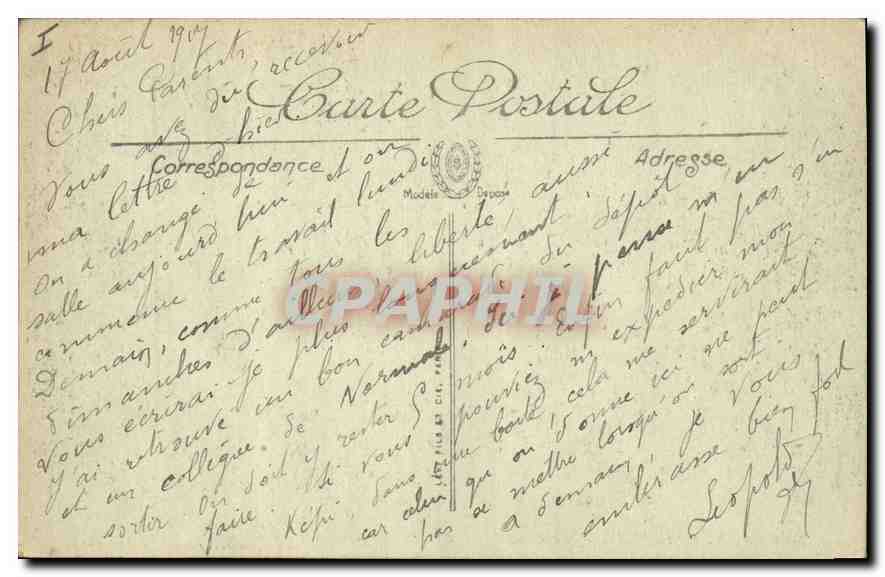 I
17 Août 1917
Chers Parents
Carte Postale
Correspondance
Adresse
Modèle Déposé
LEVY FILS ET CIE, PARIS
CPAPHIL
Vous avez dû recevoir
ma lettre d'hier
on a changé de
salle aujourd'hui et on
commence le travail lundi
Demain, comme tous les
dimanches d'ailleurs liberté, aussi
Vous écrirai-je plus longuement.
J'ai retrouvé un bon camarade du dépôt
et un collègue de Normale. J'ai à peine m'en
sortir. On doit y rester 5 mois. Enfin faut pas s'en
faire. Si vous pouviez m'expédier mon
Képi, dans une boîte, cela me servirait
car celui qu'on donne ici ne peut
pas se mettre lorsqu'on sort.
à demain, je vous
embrasse bien fort
Léopold